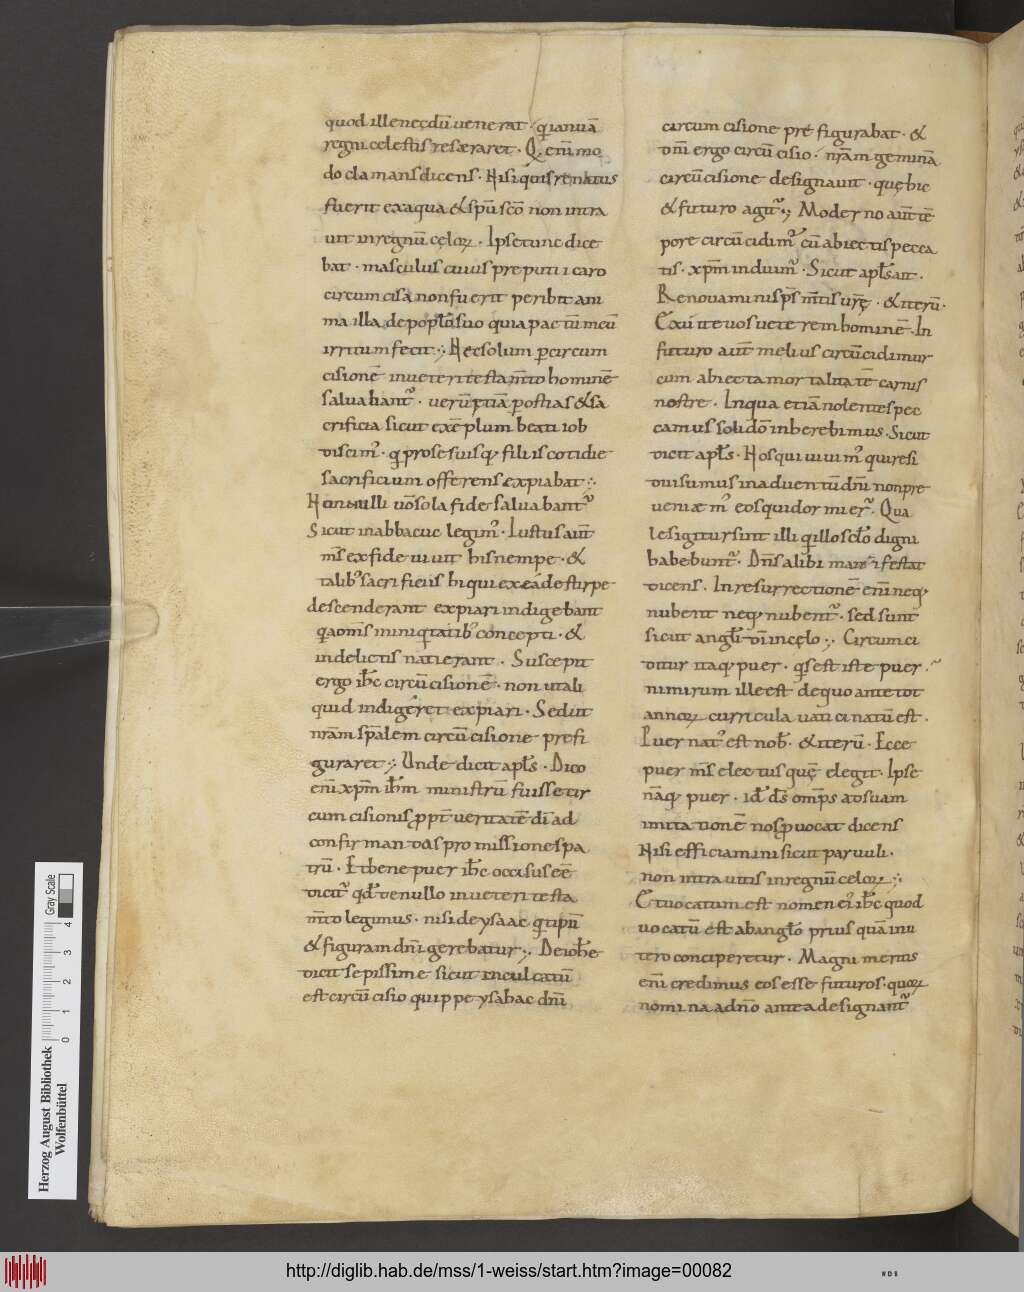 quod ille necdū uenerat · q ianuā
regni celestis resæraret · Q, enī mo
do clamans dicens · Nisi quis renatus
fuerit ex aqua & spū scō non intra
uit in regnū cęloꝝ · Ipse tunc dice
bat · masculus cuius preputii caro
circumcisa non fuerit peribit ani
ma illa de poplo suo quia pactū meū
irritum fecit · Nec solum p circum
cisionē in ueteri testamto hominē
saluabant᷑ · uerū etiā p ostias & sa
crificia sicut exēplum beati iob
discim᷒ · q pro se suisq; filiis cotidie
sacrificium offerens expiabat ·
Nonnulli uo sola fide saluabant᷑
Sicut in abbacuc legim᷒ · Iustus aut̄
ms ex fide uiuit his nempe · &
talib᷒ sacrificiis hi qui ex ea de stirpe
descenderant expiari indigebant
q a oms in iniqtatib᷒ concepti · &
in delictis nati erant · Suscepit
ergo ihc circūcisionē · non ut ali
quid indigeret expiari · Sed ut
nrām spalem circūcisione prefi
guraret · Unde dicit apls · Dico
enī xpm ihm ministrū fuisse cir
cumcisionis ppt ueritatē dī ad
confirmandas promissiones pa
trū · Et bene puer ihc occisus eē
dicit᷑ qd de nullo in ueteri testa
mto legimus · nisi de ysaac q tipū
& figuram dnī gerebatur · De iohe
dicit sepissime sicut inculcatū
est circūcisio quippe ysahac dnī
circumcisione prefigurabat · &
dnī ergo circūcisio · nrām geminā
circūcisione designauit · quę hic
& futuro agit᷑ · Moderno aut tē
pore circūcidim᷒ cū abiectis pecca
tis · xpm induim᷒ · Sicut apls ait ·
Renouamini sps mtis urę · & iterū ·
Exuite uos ueterem hominē · In
futuro aut melius circūcidimur
cum abiecta mortalitatē carnis
nostre · In qua etiā nolentes pec
camus solidō inherebimus · Sicut
dicit apls · Nos qui uiuim᷒ qui resi
dui sumus in aduentū dnī non pre
ueniæm᷒ eos qui dormier᷑ · Qua
les igitur sunt illi q illo sclo digni
habebunt᷑ · Dns alibi manifestat
dicens · In resurrectionē enī neq;
nubent neq; nubent᷑ · sed sunt
sicut angli dī in cęlo · Circumci
ditur itaq; puer · qs est iste puer ·
nimirum ille est de quo ante tot
annoꝝ curricula uaticinatū est ·
Puer nat᷒ est nob · & iterū · Ecce
puer ms electus quē elegit · Ipse
nāq; puer · id ds omps ad suam
imitationē nos puocat dicens
Nisi efficiamini sicut paruuli ·
non intrauitis in regnū celoꝝ ·
Et uocatum est nomen ei ihc quod
uocatū est ab anglo prius quā in u
tero conciperetur · Magni meritis
enī credimus eos esse futuros · quoꝝ
nomina a dno antea designant᷑
Herzog August Bibliothek
Wolfenbüttel
Gray Scale
0 1 2 3 4
http://diglib.hab.de/mss/1-weiss/start.htm?image=00082